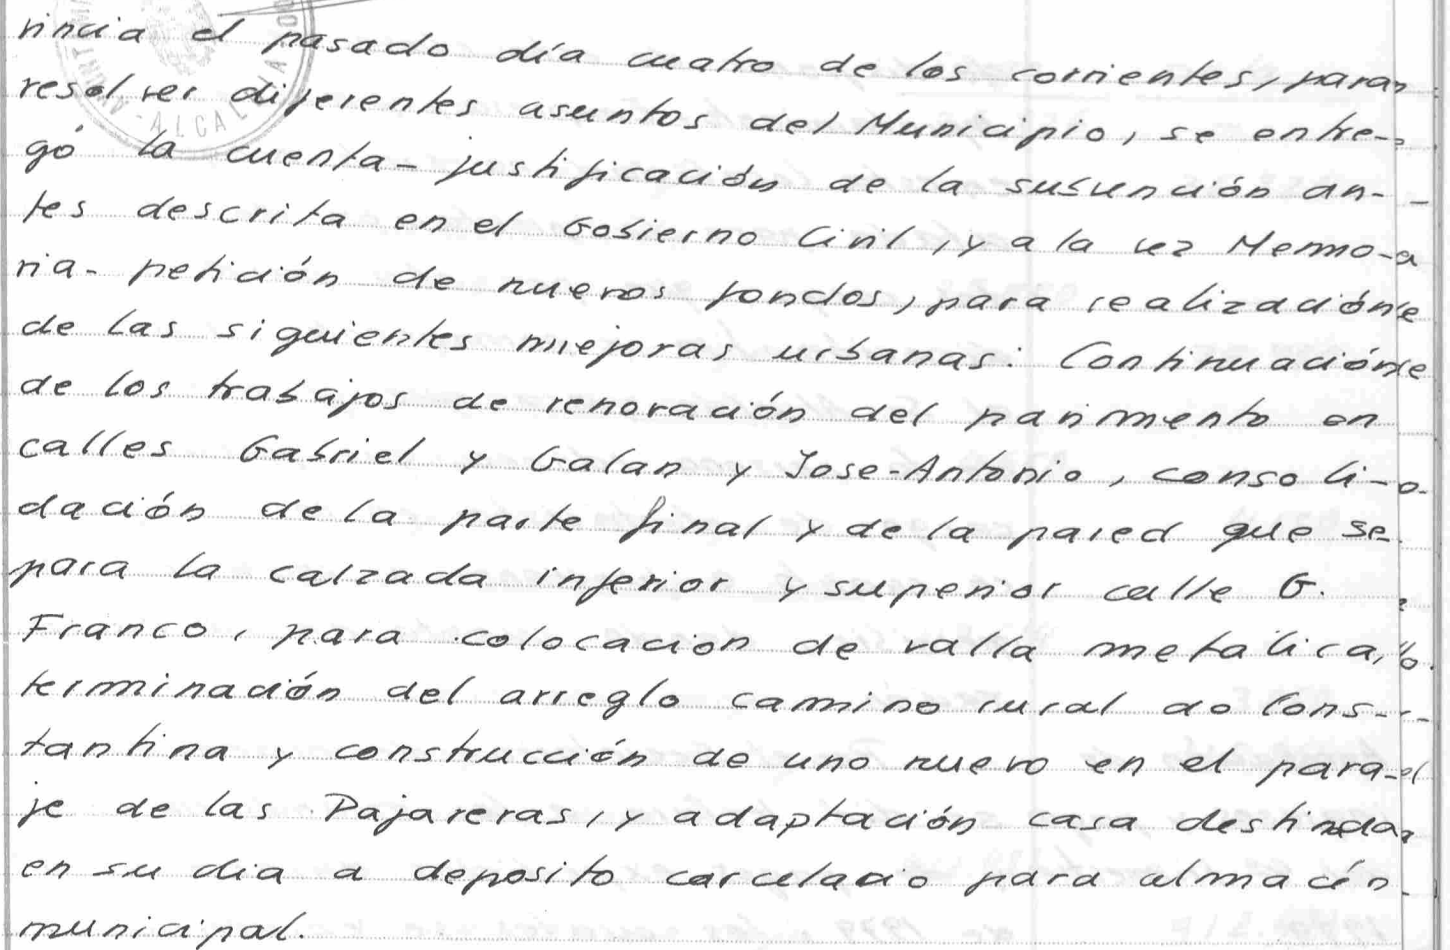 vincia el pasado día cuatro de los corrientes, para
resolver diferentes asuntos del Municipio, se entre-
gó la cuenta-justificación de la subvención an-
tes descrita en el Gobierno Civil, y a la vez Memo-
ria-petición de nuevos fondos, para realización
de las siguientes mejoras urbanas: Continuación
de los trabajos de renovación del pavimento en
calles Gabriel y Galan y Jose-Antonio, consoli-
dación de la parte final y de la pared que se
para la calzada inferior y superior calle G.
Franco, para colocacion de valla metalica,
terminación del arreglo camino rural de Cons-
tantina y construcción de uno nuevo en el para-
je de las Pajareras, y adaptación casa destinada
en su dia a deposito carcelario para almacén
municipal.
ALCALDIA